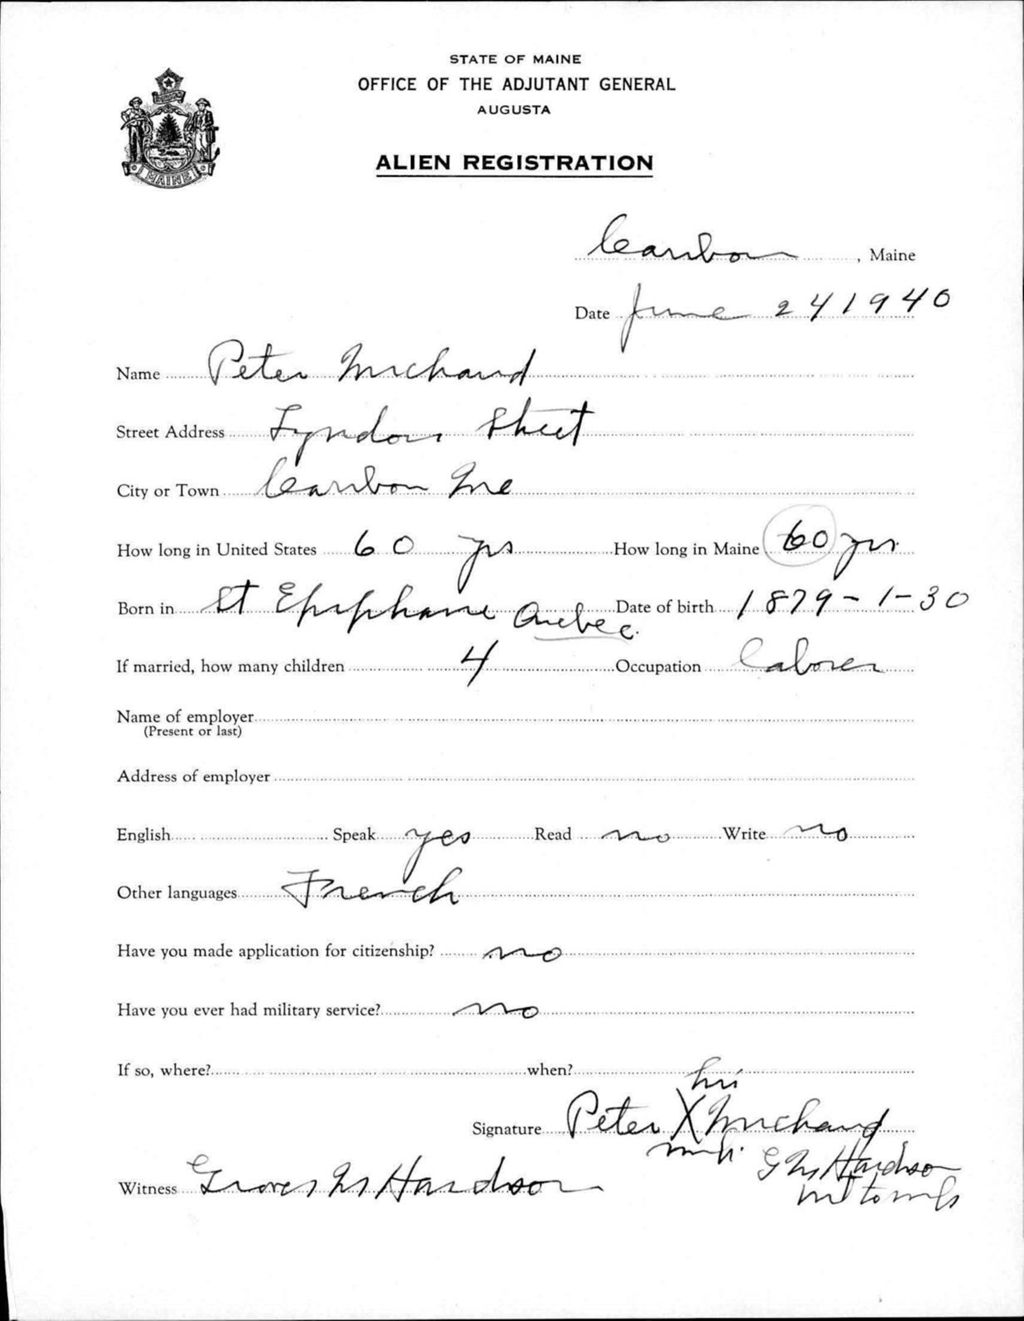 STATE OF MAINE
OFFICE OF THE ADJUTANT GENERAL
AUGUSTA
ALIEN REGISTRATION
MAINE
Caribou, Maine
Date June 24 1940
Name Peter Michaud
Street Address Lyndon Street
City or Town Caribou Me
How long in United States 60 yrs How long in Maine 60 yrs
Born in St Epiphane Quebec Date of birth 1879-1-30
If married, how many children 4 Occupation Laborer
Name of employer
(Present or last)
Address of employer
English Speak yes Read no Write no
Other languages French
Have you made application for citizenship? no
Have you ever had military service? no
If so, where? when?
his
Signature Peter X Michaud
mark
G M Hardson
Witness M Hardson
wit to mark